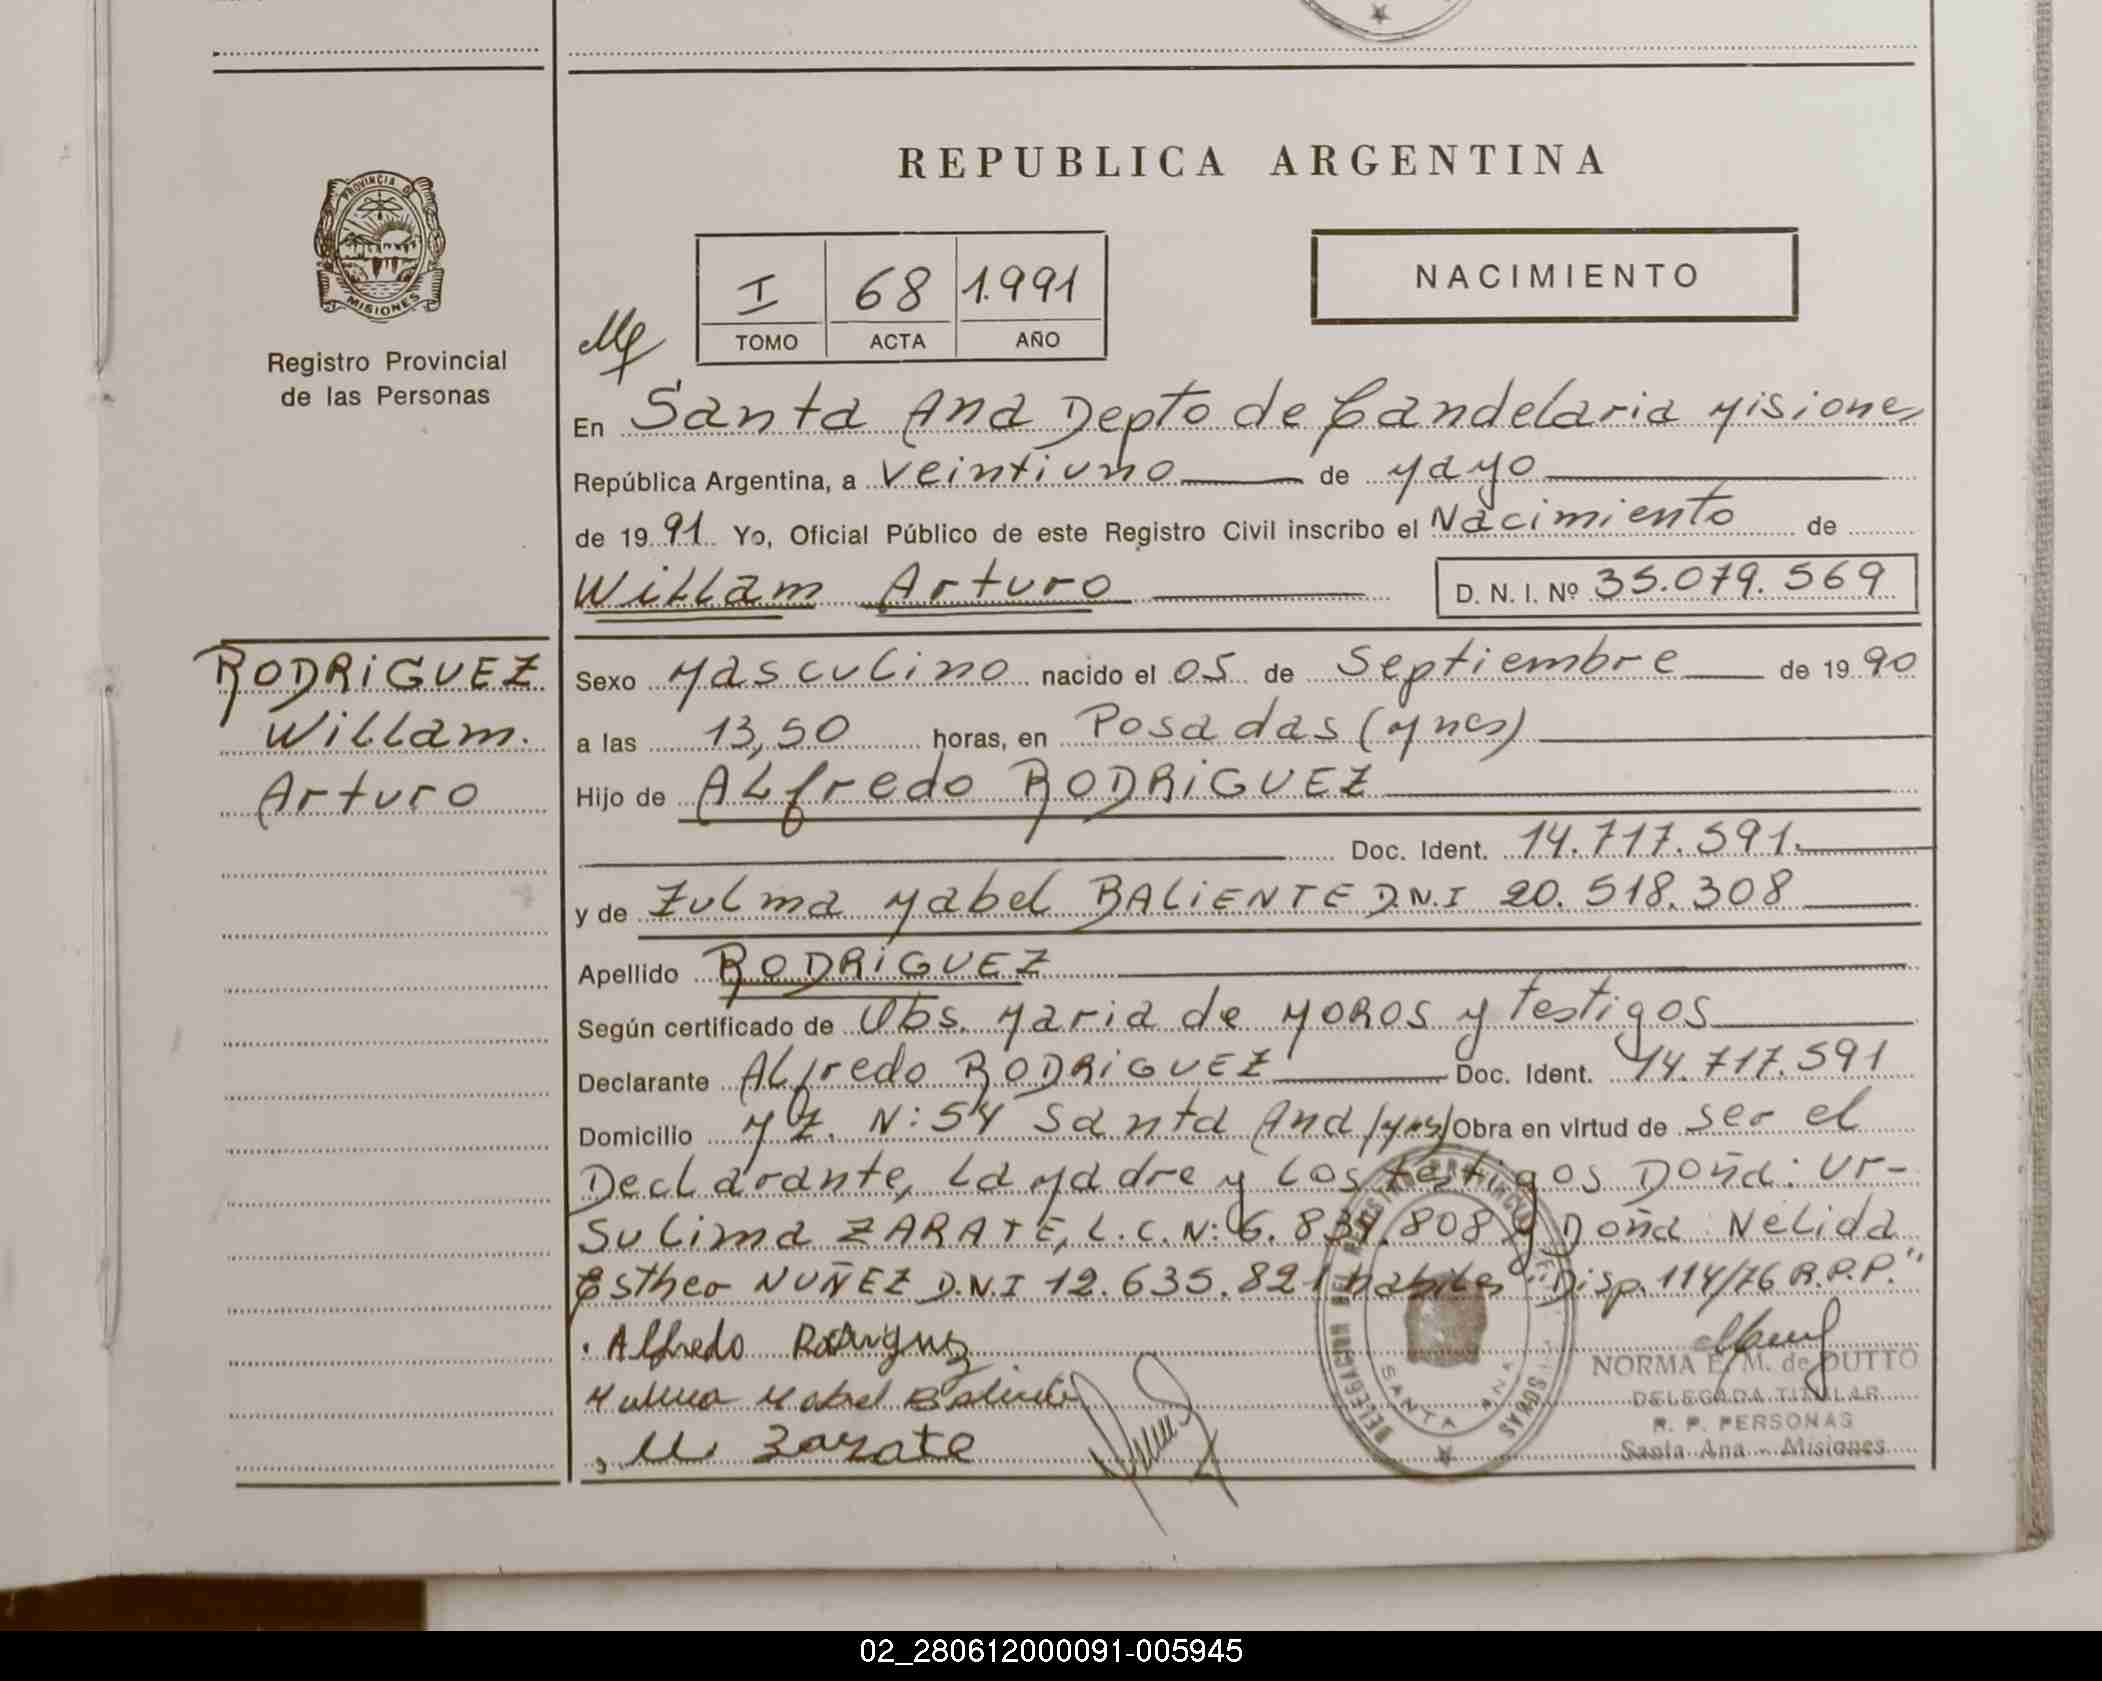 REPUBLICA ARGENTINA
PROVINCIA DE
MISIONES
Registro Provincial
de las Personas
I 68 1.991
TOMO ACTA AÑO
NACIMIENTO
En Santa Ana Depto de Candelaria Misiones
República Argentina, a veintiuno de Mayo
de 19 91 Yo, Oficial Público de este Registro Civil inscribo el Nacimiento de
Willam Arturo D. N. I. Nº 35.079.569
RODRIGUEZ
Willam.
Arturo
Sexo Masculino nacido el 05 de Septiembre de 19 90
a las 13,50 horas, en Posadas (Mnes)
Hijo de ALfredo RODRIGUEZ
Doc. Ident. 14.717.591.
y de Zulma Mabel BALIENTE D.N.I 20.518.308
Apellido RODRIGUEZ
Según certificado de Obs. Maria de MOROS y Testigos
Declarante ALfredo RODRIGUEZ Doc. Ident. 14.717.591
Domicilio Mz. N: 54 Santa Ana (Mnes) Obra en virtud de ser el
Declarante, La Madre y Los testigos Doña: Ur-
sulima ZARATE, L.C. N: 6.839.808 y Doña Nelida
Esther NUÑEZ D.N.I 12.635.821 habiles "Disp. 114/76 R.P.P."
Alfredo Rodriguez
Zulma Mabel Baliente
U Zarate
DELEGACION DEL REGISTRO PROVINCIAL
SANTA ANA
MISIONES
NORMA E. M. de DUTTO
DELEGADA TITULAR
R. P. PERSONAS
Santa Ana - Misiones
02_280612000091-005945